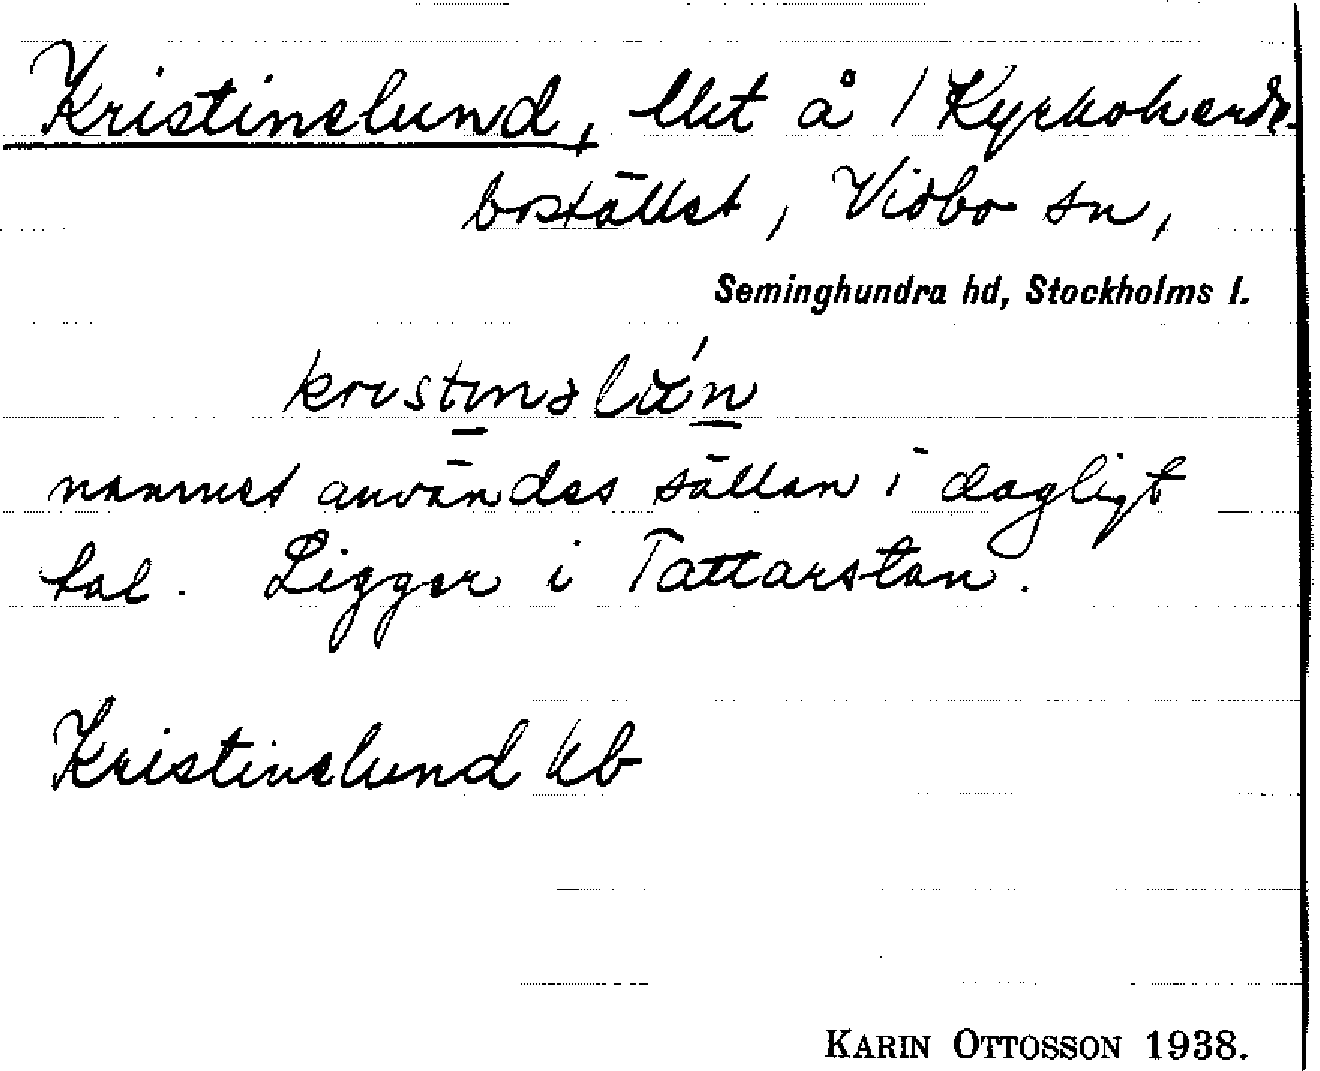 Kristinelund, lht å 1 Kyrkoherde-
bostället, Vidbo sn,
Seminghundra hd, Stockholms l.
kristinəlún
namnet användes sällan i dagligt
tal. Ligger i Tattarstan.
Kristinelund kb
KARIN OTTOSSON 1938.